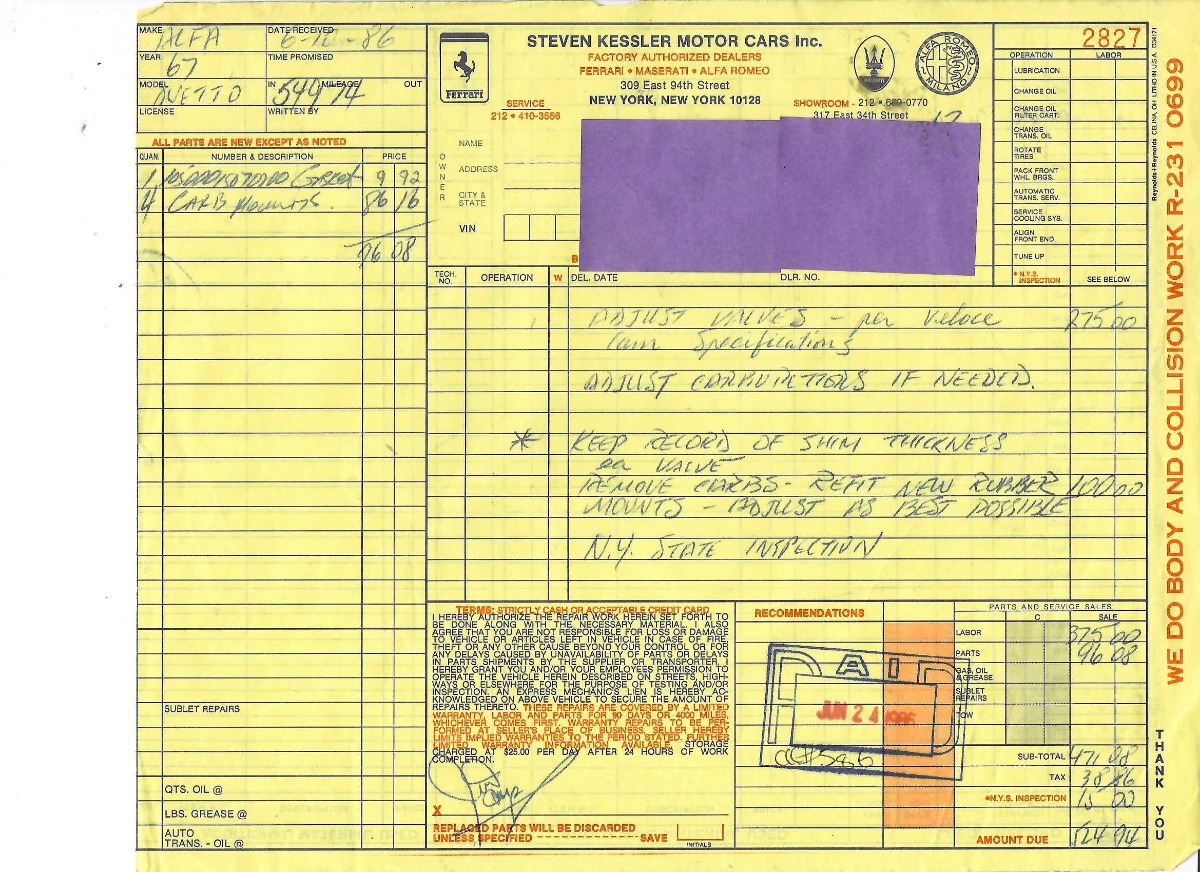 MAKE ALFA
DATE RECEIVED 6-10-86
YEAR 67
TIME PROMISED
MODEL DUETTO
IN 54474 MILEAGE OUT
LICENSE
WRITTEN BY
ALL PARTS ARE NEW EXCEPT AS NOTED
QUAN. NUMBER & DESCRIPTION PRICE
1 9 92
4 CARB Mounts. 86 16
96 08
SUBLET REPAIRS
QTS. OIL @
LBS. GREASE @
AUTO
TRANS. - OIL @
Ferrari
STEVEN KESSLER MOTOR CARS Inc.
FACTORY AUTHORIZED DEALERS
FERRARI • MASERATI • ALFA ROMEO
309 East 94th Street
NEW YORK, NEW YORK 10128
SERVICE
212 • 410-3566
SHOWROOM - 212 • 689-0770
317 East 34th Street
ALFA ROMEO
MILANO
OWNER
NAME
ADDRESS
CITY &
STATE
VIN
2827
OPERATION LABOR
LUBRICATION
CHANGE OIL
CHANGE OIL
FILTER CART.
CHANGE
TRANS. OIL
ROTATE
TIRES
PACK FRONT
WHL. BRGS.
AUTOMATIC
TRANS. SERV.
SERVICE
COOLING SYS.
ALIGN
FRONT END
TUNE UP
* N.Y.S.
INSPECTION SEE BELOW
TECH.
NO. OPERATION W DEL. DATE DLR. NO.
ADJUST VALVES - per Veloce 275 00
Cam Specifications
ADJUST CARBURETTORS IF NEEDED.
* KEEP RECORD OF SHIM THICKNESS
ea VALVE
REMOVE CARBS - REFIT NEW RUBBER 100 00
MOUNTS - ADJUST AS BEST POSSIBLE
N.Y. STATE INSPECTION
TERMS: STRICTLY CASH OR ACCEPTABLE CREDIT CARD
I HEREBY AUTHORIZE THE REPAIR WORK HEREIN SET FORTH TO
BE DONE ALONG WITH THE NECESSARY MATERIAL. I ALSO
AGREE THAT YOU ARE NOT RESPONSIBLE FOR LOSS OR DAMAGE
TO VEHICLE OR ARTICLES LEFT IN VEHICLE IN CASE OF FIRE,
THEFT OR ANY OTHER CAUSE BEYOND YOUR CONTROL OR FOR
ANY DELAYS CAUSED BY UNAVAILABILITY OF PARTS OR DELAYS
IN PARTS SHIPMENTS BY THE SUPPLIER OR TRANSPORTER. I
HEREBY GRANT YOU AND/OR YOUR EMPLOYEES PERMISSION TO
OPERATE THE VEHICLE HEREIN DESCRIBED ON STREETS, HIGH-
WAYS OR ELSEWHERE FOR THE PURPOSE OF TESTING AND/OR
INSPECTION. AN EXPRESS MECHANIC'S LIEN IS HEREBY AC-
KNOWLEDGED ON ABOVE VEHICLE TO SECURE THE AMOUNT OF
REPAIRS THERETO. THESE REPAIRS ARE COVERED BY A LIMITED
WARRANTY, LABOR AND PARTS FOR 90 DAYS OR 4000 MILES,
WHICHEVER COMES FIRST. WARRANTY REPAIRS TO BE PER-
FORMED AT SELLER'S PLACE OF BUSINESS. SELLER HEREBY
LIMITS IMPLIED WARRANTIES TO THE PERIOD STATED. FURTHER
LIMITED WARRANTY INFORMATION AVAILABLE. STORAGE
CHARGED AT $25.00 PER DAY AFTER 24 HOURS OF WORK
COMPLETION.
X
REPLACED PARTS WILL BE DISCARDED
UNLESS SPECIFIED SAVE
INITIALS
RECOMMENDATIONS
PAID
JUN 24 1986
PARTS AND SERVICE SALES
C SALE
LABOR 375 00
PARTS 96 08
GAS, OIL
& GREASE
SUBLET
REPAIRS
TOW
SUB-TOTAL 471 08
TAX 38 86
*N.Y.S. INSPECTION 15 00
AMOUNT DUE 524 94
WE DO BODY AND COLLISION WORK R-231 0699
THANK YOU